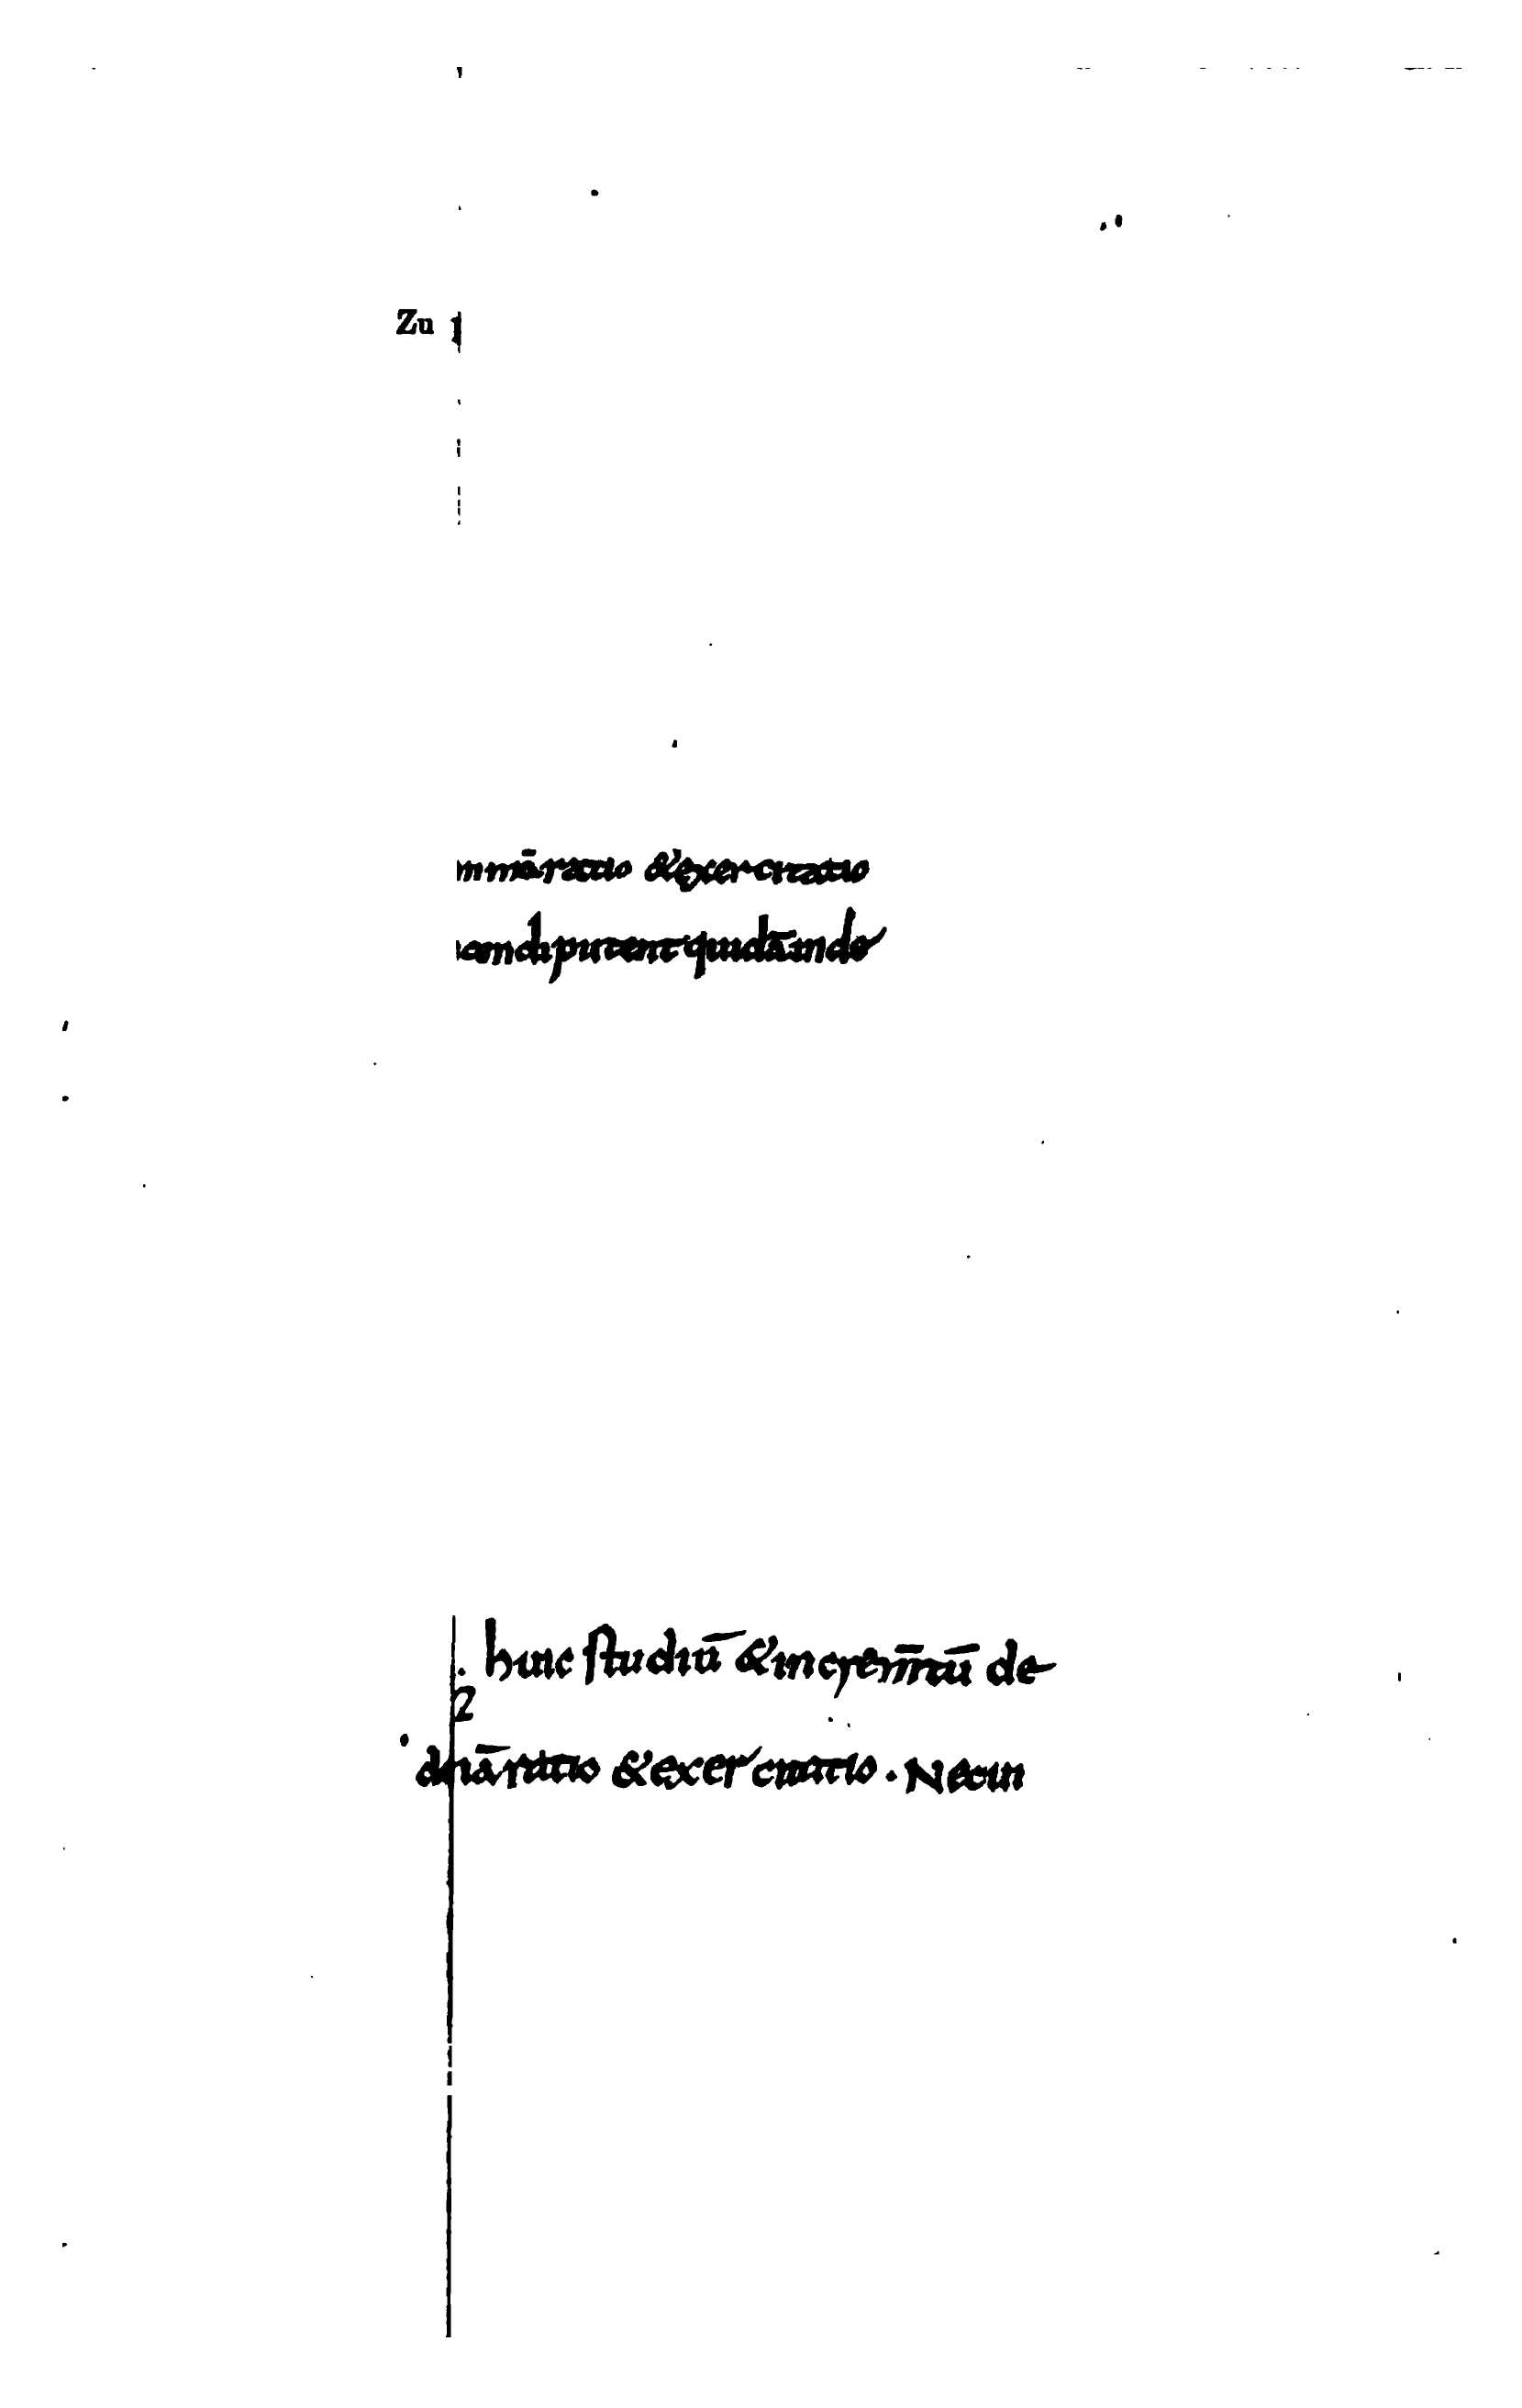 Zu
mmā ratio & exercitatio
endi putent quidā inde
. huic studiū & increm̄tū de
dnā ratio & exercitatio . Nec in